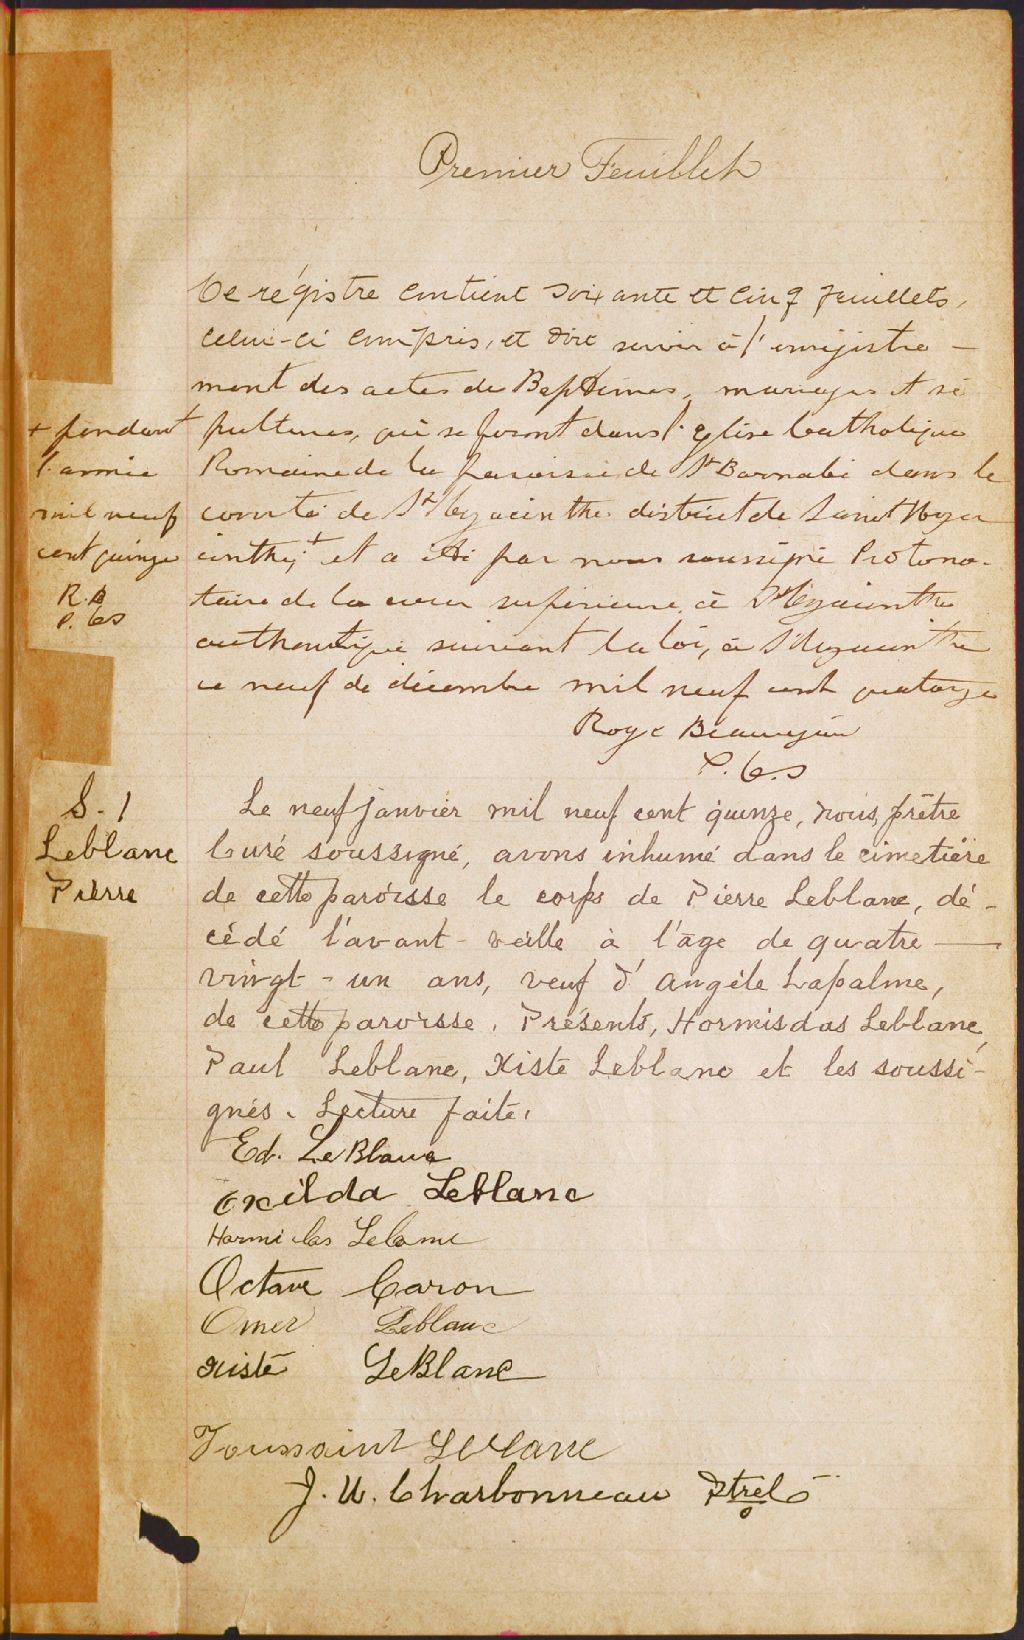 Premier Feuillet
Ce régistre contient soixante et cinq feuillets,
celui-ci compris, et doit servir à l'enrégistre-
ment des actes de Baptêmes, mariages et sé
+ pendant
l'année
mil neuf
cent quinze
R. B
P. C. S
pultures, qui se feront dans l'église Catholique
Romaine de la paroisse de St Barnabé dans le
comté de St Hyacinthe district de Saint Hya
cinthe, + et a été par nous soussigné Protono-
taire de la cour supérieure, à St Hyacinthe
authentiqué suivant la loi, à St Hyacinthe
ce neuf de décembre mil neuf cent quatorze
Roy & Beauregard
P. C. S
S. 1
Leblanc
Pierre
Le neuf janvier mil neuf cent quinze, nous, prêtre
Curé soussigné, avons inhumé dans le cimetière
de cette paroisse le corps de Pierre Leblanc, dé-
cédé l'avant-veille à l'âge de quatre
vingt-un ans, veuf d'Angèle Lapalme,
de cette paroisse. Présents, Hormisdas Leblanc,
Paul Leblanc, Xiste Leblanc et les soussi-
gnés. Lecture faite.
Ed. LeBlanc
Exilda Leblanc
Hormidas Leblanc
Octave Caron
Omer Leblanc
Xiste LeBlanc
Toussaint Leblanc
J. U. Charbonneau Ptre